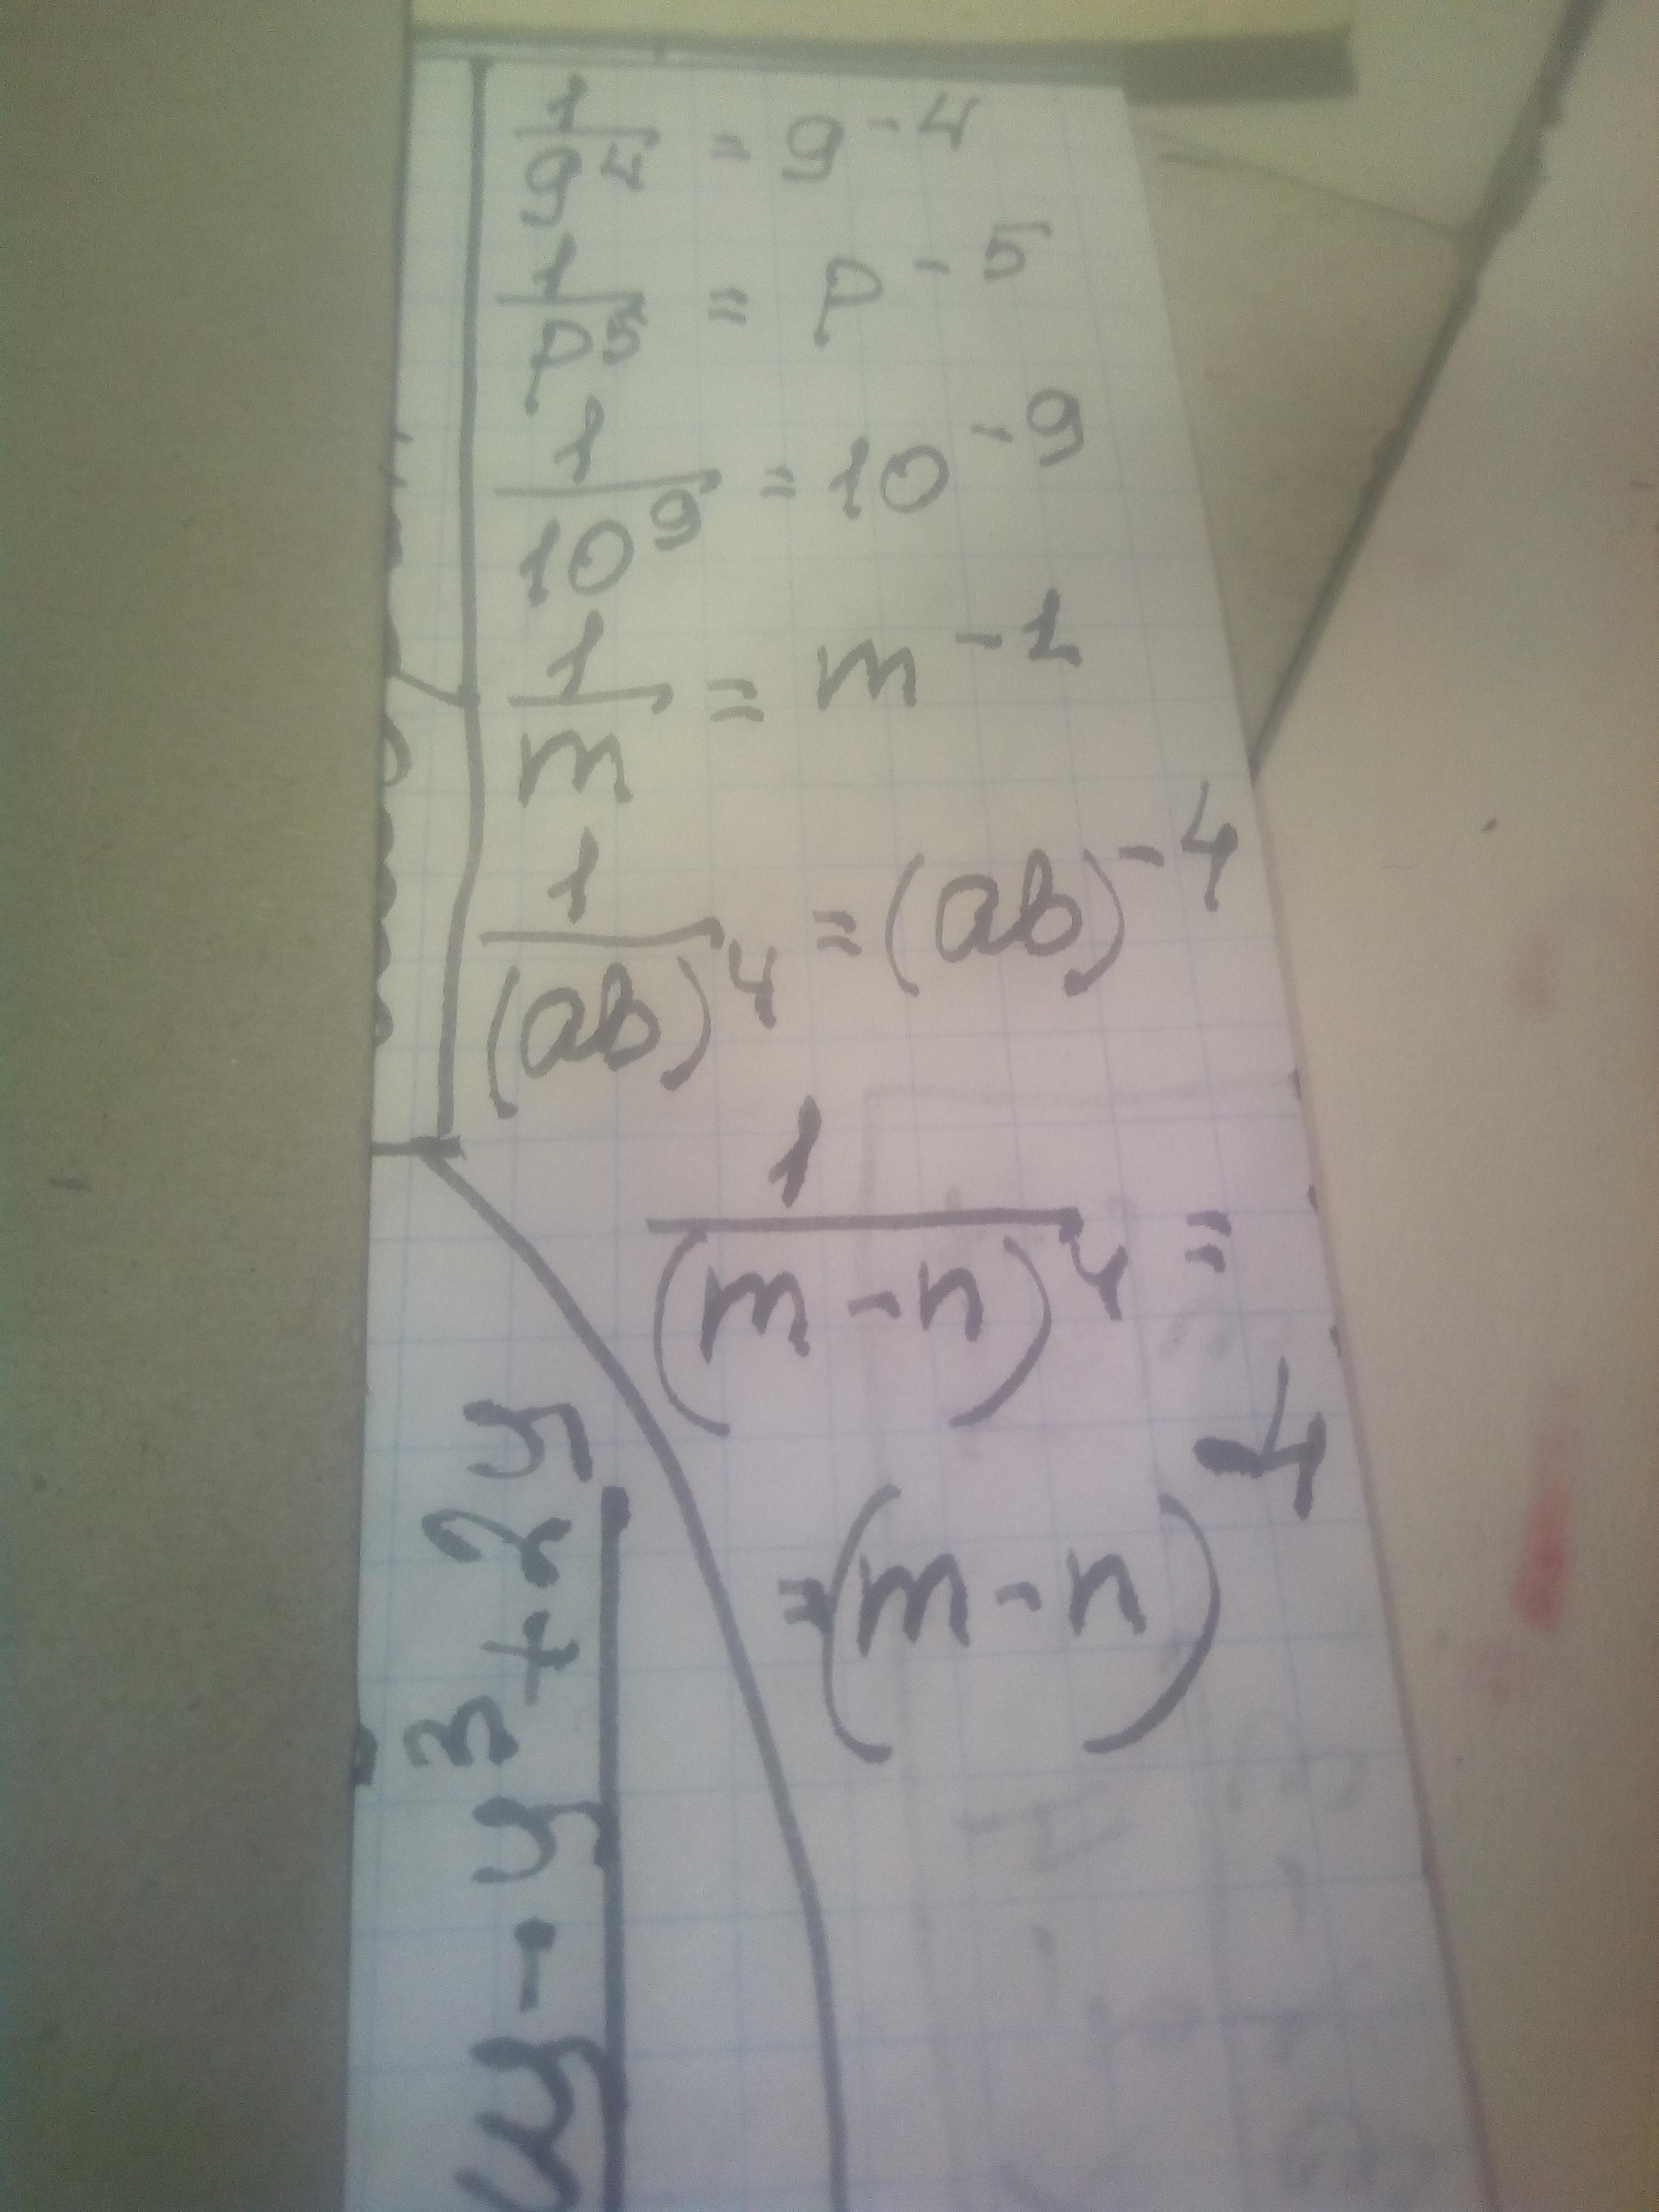 1/9^4 = 9^-4
1/p^5 = p^-5
1/10^9 = 10^-9
1/m = m^-1
1/(ab)^4 = (ab)^-4
1/(m-n)^4 =
=(m-n)^-4
y - · y^3 + 2y